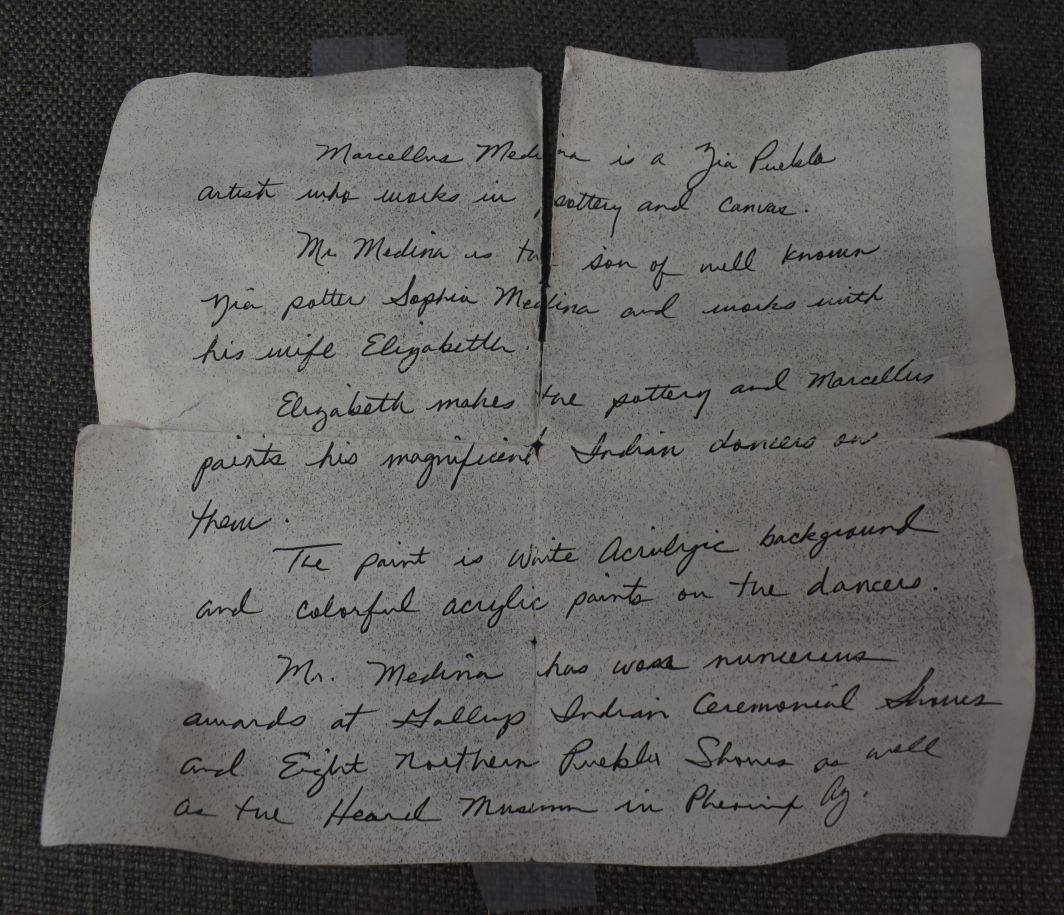 Marcellus Medina is a Zia Pueblo
artist who works in pottery and canvas.
Mr. Medina is the son of well known
Zia potter Sophia Medina and works with
his wife Elizabeth.
Elizabeth makes the pottery and Marcellus
paints his magnificent Indian dancers on
them.
The paint is White Acrylic background
and colorful acrylic paints on the dancers.
Mr. Medina has won numerous
awards at Gallup Indian Ceremonial Shows
and Eight Northern Pueblo Shows as well
as the Heard Museum in Phoenix Az.